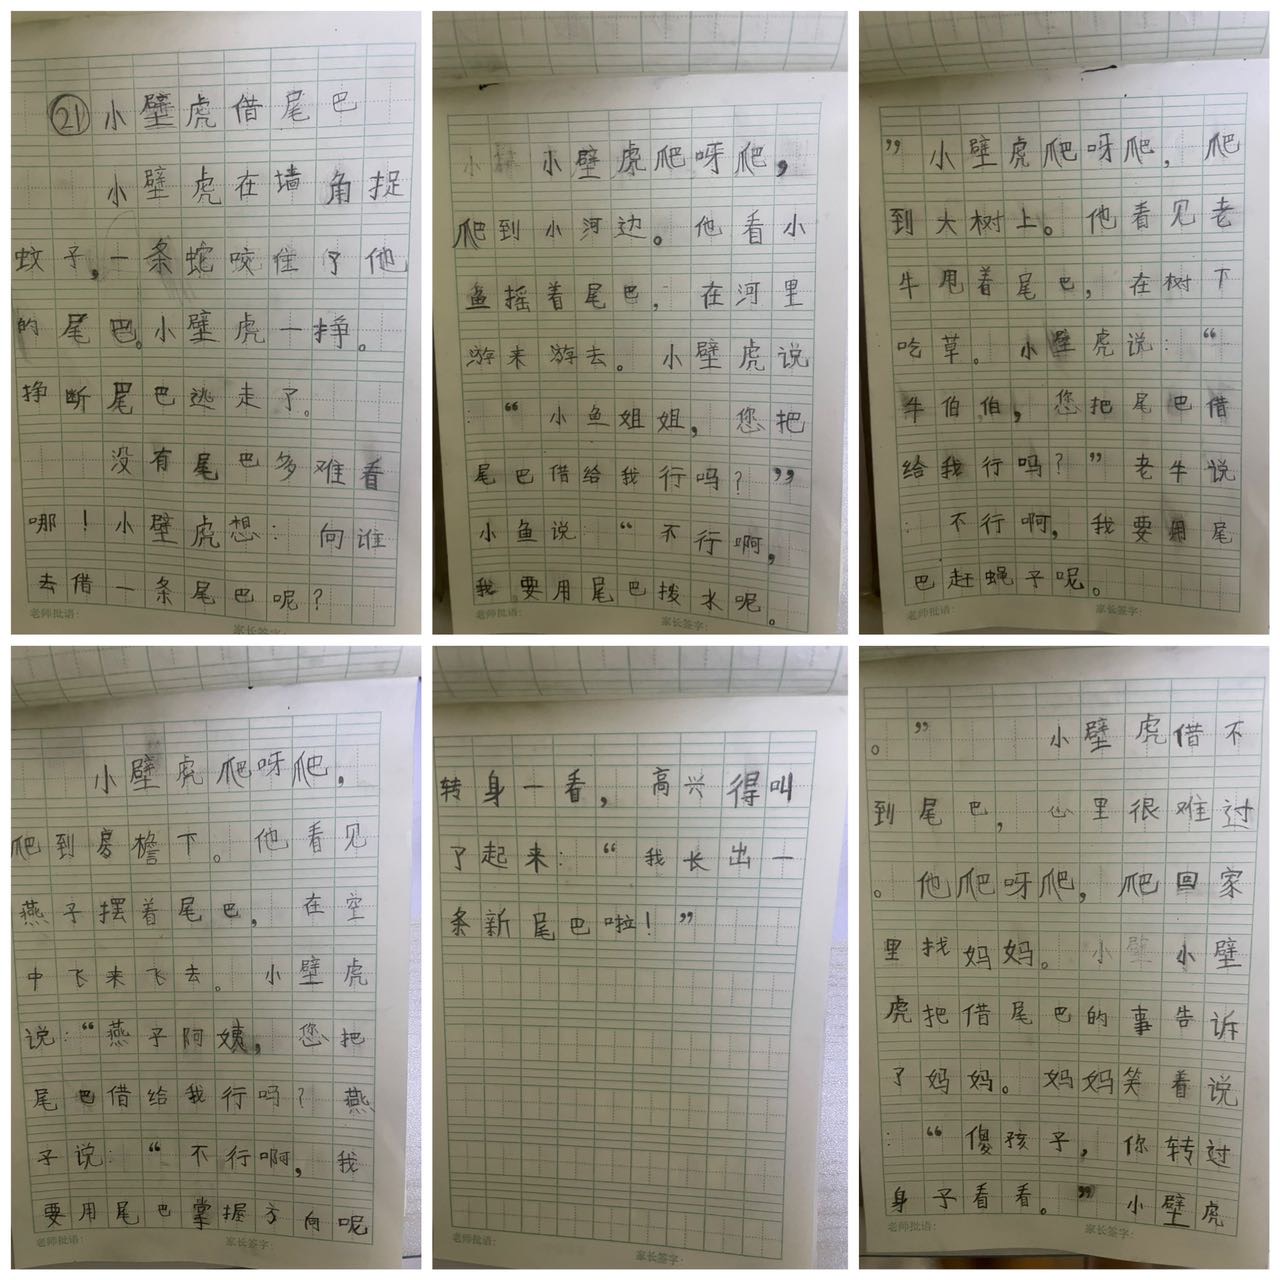 ㉑小壁虎借尾巴
小壁虎在墙角捉
蚊子,一条蛇咬住了他
的尾巴。小壁虎一挣。
挣断尾巴逃走了。
没有尾巴多难看
哪！小壁虎想：向谁
去借一条尾巴呢？
老师批语：
家长签字：
小壁虎爬呀爬，
爬到小河边。他看小
鱼摇着尾巴，在河里
游来游去。小壁虎说
：“小鱼姐姐，您把
尾巴借给我行吗？”
小鱼说：“不行啊，
我要用尾巴拨水呢。
老师批语：
家长签字：
”小壁虎爬呀爬，爬
到大树上。他看见老
牛甩着尾巴，在树下
吃草。小壁虎说：“
牛伯伯，您把尾巴借
给我行吗？”老牛说
：不行啊，我要用尾
巴赶蝇子呢。
老师批语：
家长签字：
小壁虎爬呀爬，
爬到房檐下。他看见
燕子摆着尾巴，在空
中飞来飞去。小壁虎
说：“燕子阿姨，您把
尾巴借给我行吗？燕
子说：“不行啊，我
要用尾巴掌握方向呢
老师批语：
家长签字：
转身一看，高兴得叫
了起来：“我长出一
条新尾巴啦！”
老师批语：
家长签字：
。”小壁虎借不
到尾巴，心里很难过
。他爬呀爬，爬回家
里找妈妈。小壁小壁
虎把借尾巴的事告诉
了妈妈。妈妈笑着说
：“傻孩子，你转过
身子看看。”小壁虎
老师批语：
家长签字：